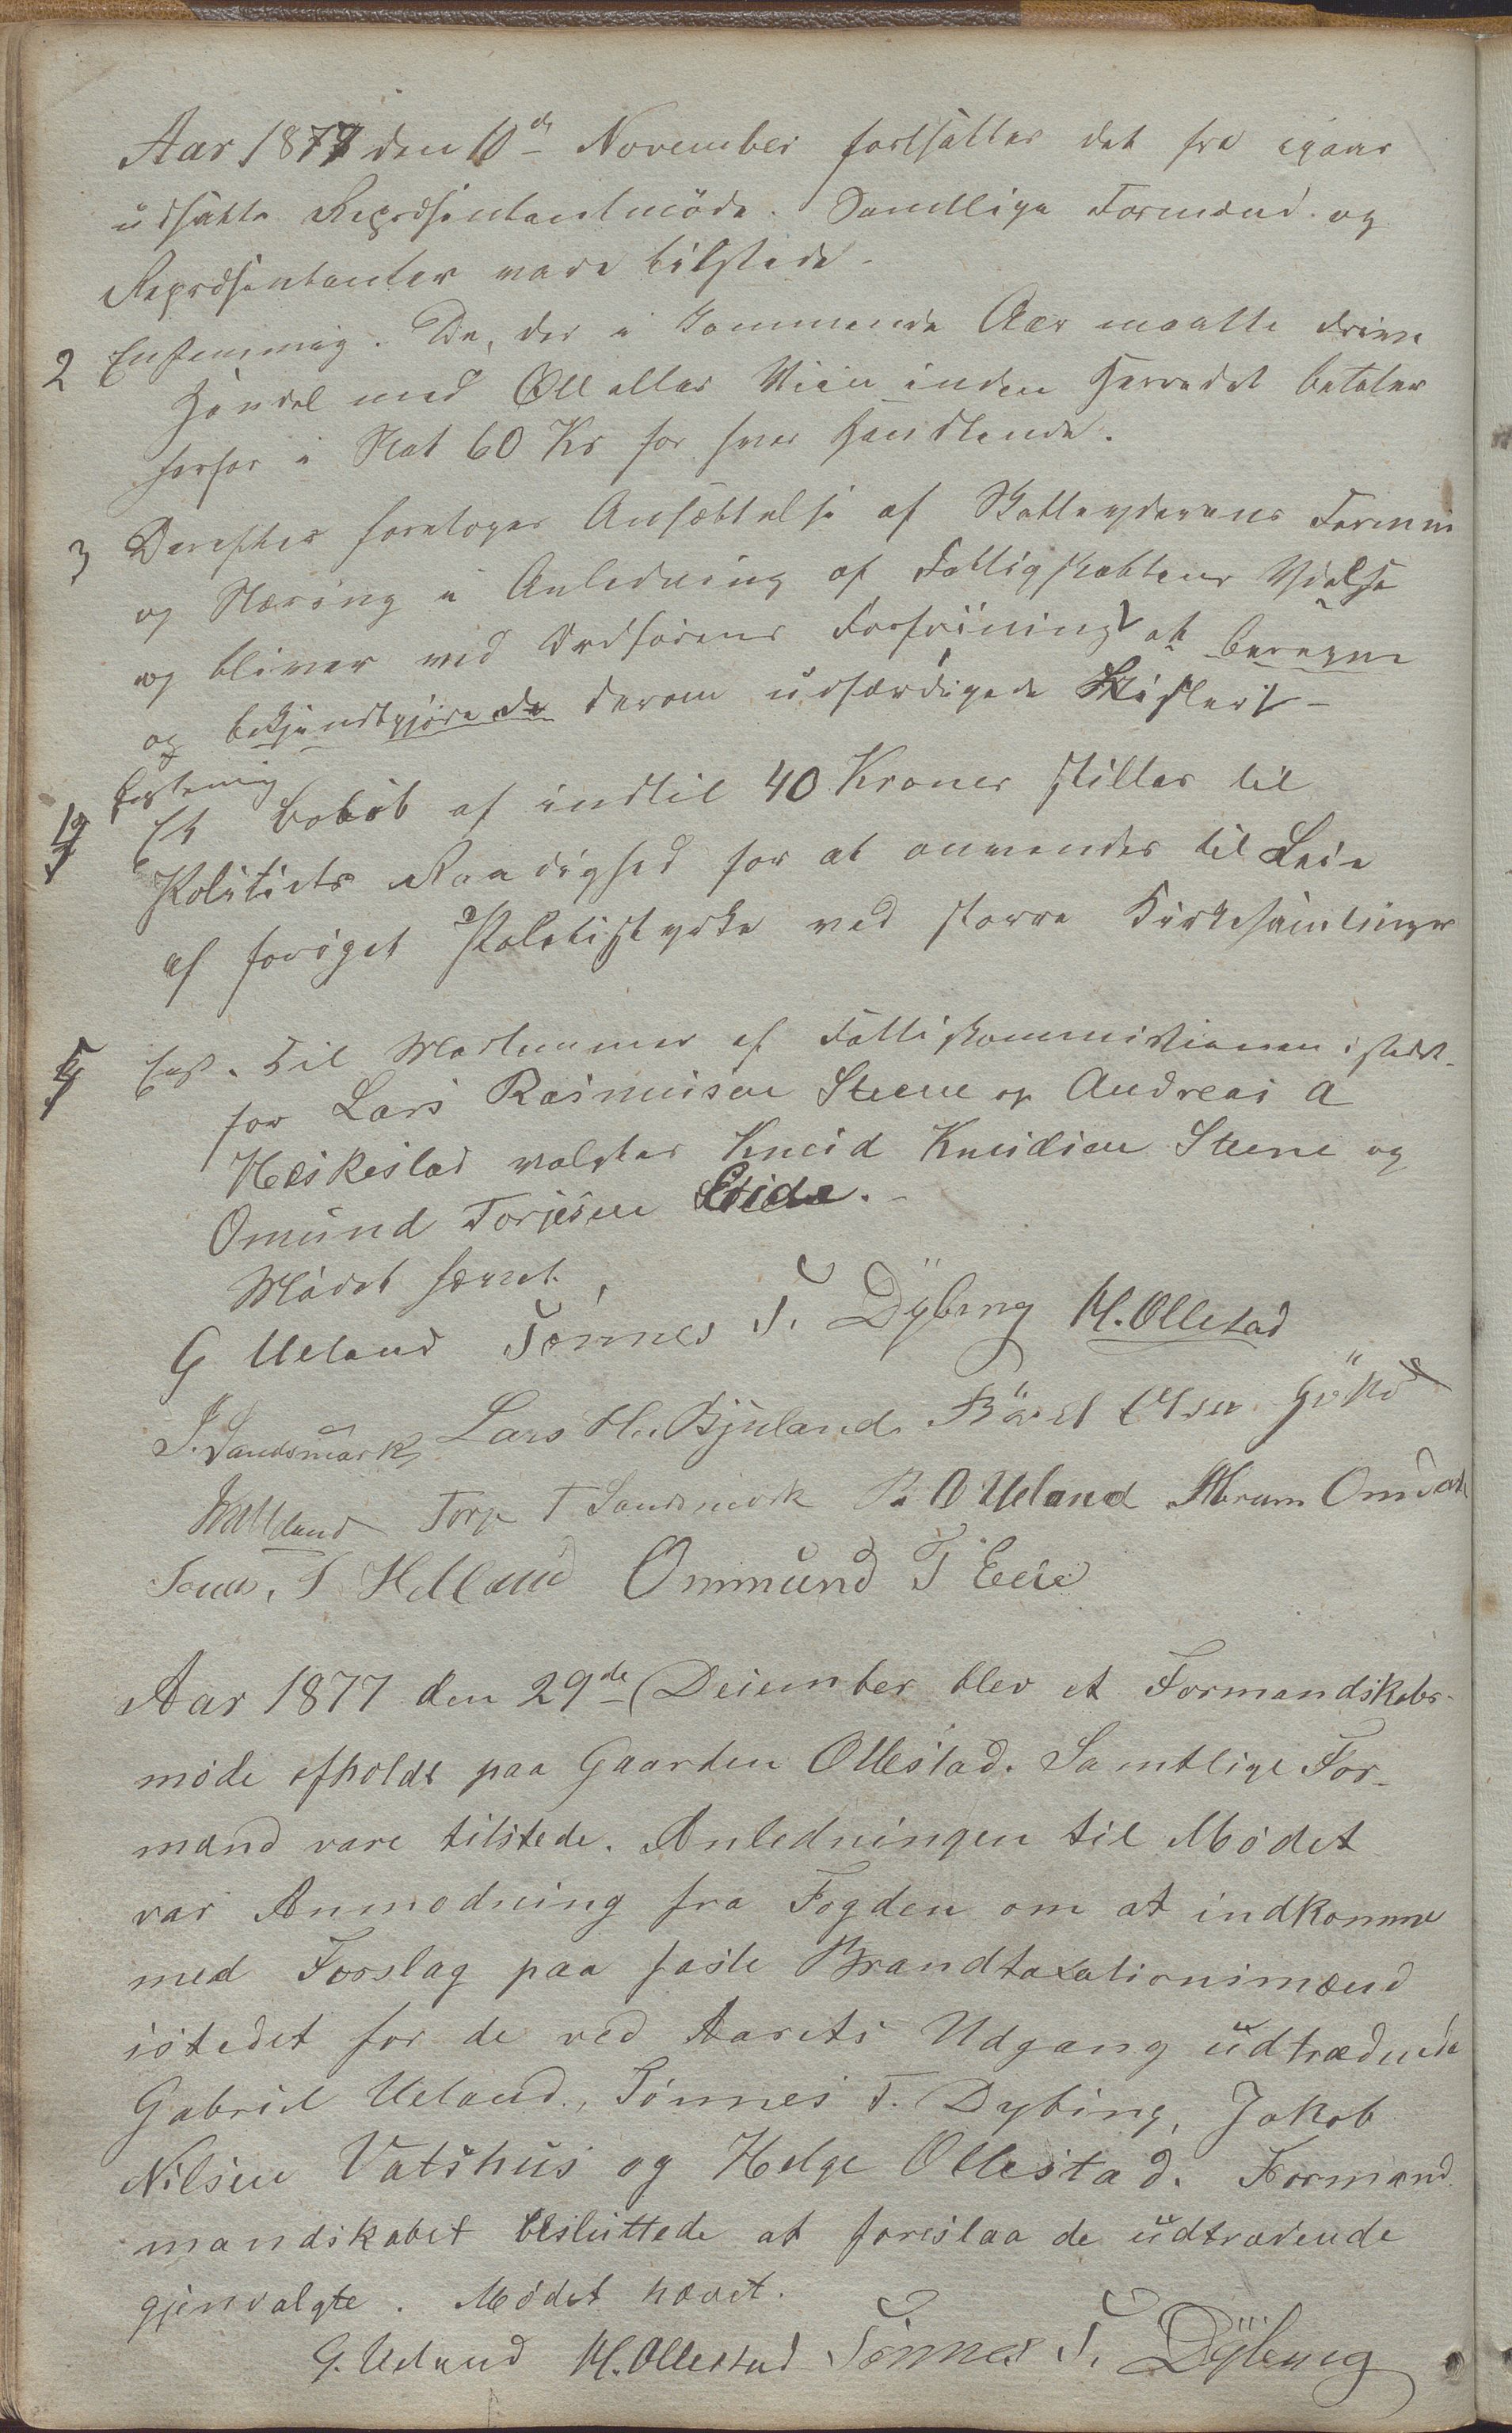 Aar 1877 den 10de November fortsattes det fra igaar
udsatte Repræsentantmöde. Samtlige Formænd og
Repræsentanter vare tilstede.
2 Enstemmig. De, der i kommende Aar maatte drive
Handel med Øll eller Viin inden Herredet betaler
herfor i Skat 60 Kr for hver Handlende.
3 Derefter foretoges Ansættelse af Skatteyderens Formue
og Næring i Anledning af Fattigskattens Ydelse
og bliver ved Ordførerens Forføining at beregne
og bekjendtgjøre de derom udfærdigede Lister
Enstemig
4 Et Beløb af indtil 40 Kroner stilles til
Politiets Raadighed for at anvendes til Leie
af forøget Politistyrke ved større Kirkesamlinger
5 Enst. Til Medlemmer af Fattigkommissionen istedet
for Lars Rasmusen Steene og Andreas A
Heskestad valgtes Knud Knudsen Steene og
Omund Torjesen Eide.
Mödet hævet.
G Ueland Tönnes T. Dÿbing H. Ollestad
J. Sandsmark Lars H. Bjuland Bård Olsen
Torje T Sandsmark R. O Ueland Abram Omdal
Tønnes. T Helland Ommund T Eeie
Aar 1877 den 29de December blev et Formandskabs-
möde afholdt paa Gaarden Ollestad. Samtlige For-
mænd vare tilstede. Anledningen til Mødet
var Anmodning fra Fogden om at indkomme
med Forslag paa faste Brandtaxationsmænd
istedet for de ved Aarets Udgang udtrædende
Gabriel Ueland, Tönnes T. Dybing, Jakob
Nilsen Vatshus og Helge Ollestad. Formand
mandskabet besluttede at foreslaa de udtrædende
gjenvalgte. Mödet hævet.
G. Ueland H. Ollestad Tönnes T. Dÿbing